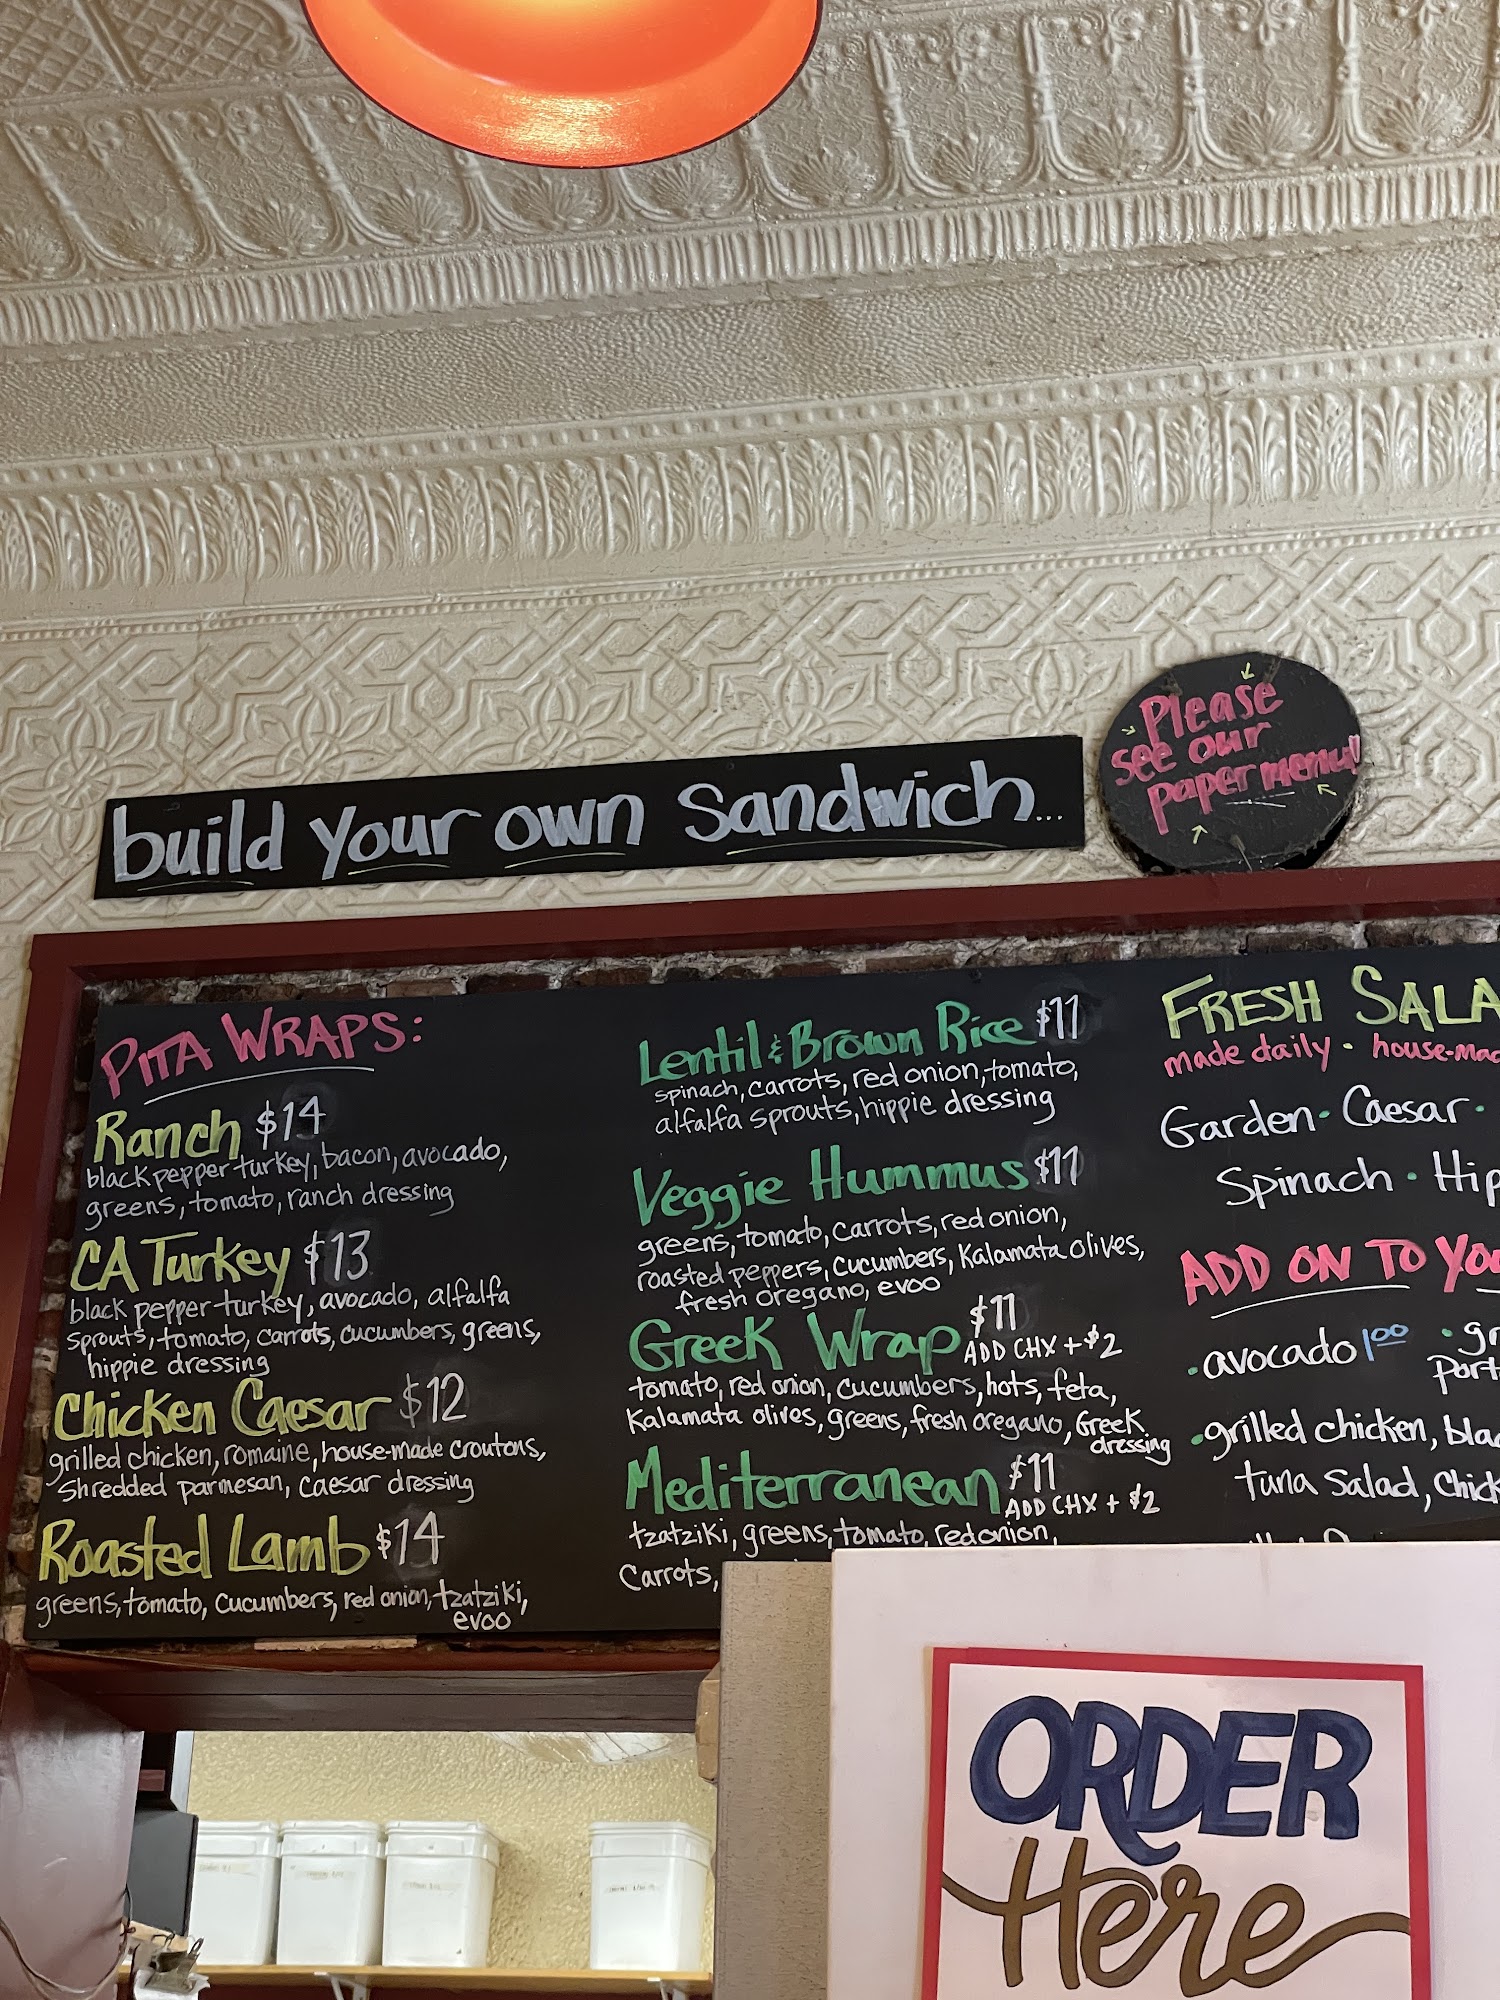 build your own sandwich...
Please
see our
paper menu!!
PITA WRAPS:
Ranch $14
black pepper turkey, bacon, avocado,
greens, tomato, ranch dressing
CA Turkey $13
black pepper turkey, avocado, alfalfa
sprouts, tomato, carrots, cucumbers, greens,
hippie dressing
Chicken Caesar $12
grilled chicken, romaine, house-made croutons,
Shredded parmesan, caesar dressing
Roasted Lamb $14
greens, tomato, cucumbers, red onion, tzatziki,
evoo
Lentil & Brown Rice $11
spinach, carrots, red onion, tomato,
alfalfa sprouts, hippie dressing
Veggie Hummus $11
greens, tomato, carrots, red onion,
roasted peppers, cucumbers, Kalamata olives,
fresh oregano, evoo
Greek Wrap $11
ADD CHX + $2
tomato, red onion, cucumbers, hots, feta,
Kalamata olives, greens, fresh oregano, Greek
dressing
Mediterranean $11
ADD CHX + $2
tzatziki, greens, tomato, red onion,
Carrots,
FRESH SALA
made daily • house-mad
Garden • Caesar •
Spinach • Hip
ADD ON TO YOU
• avocado 1.00 • gr
port
• grilled chicken, blac
tuna salad, chick
ORDER
Here